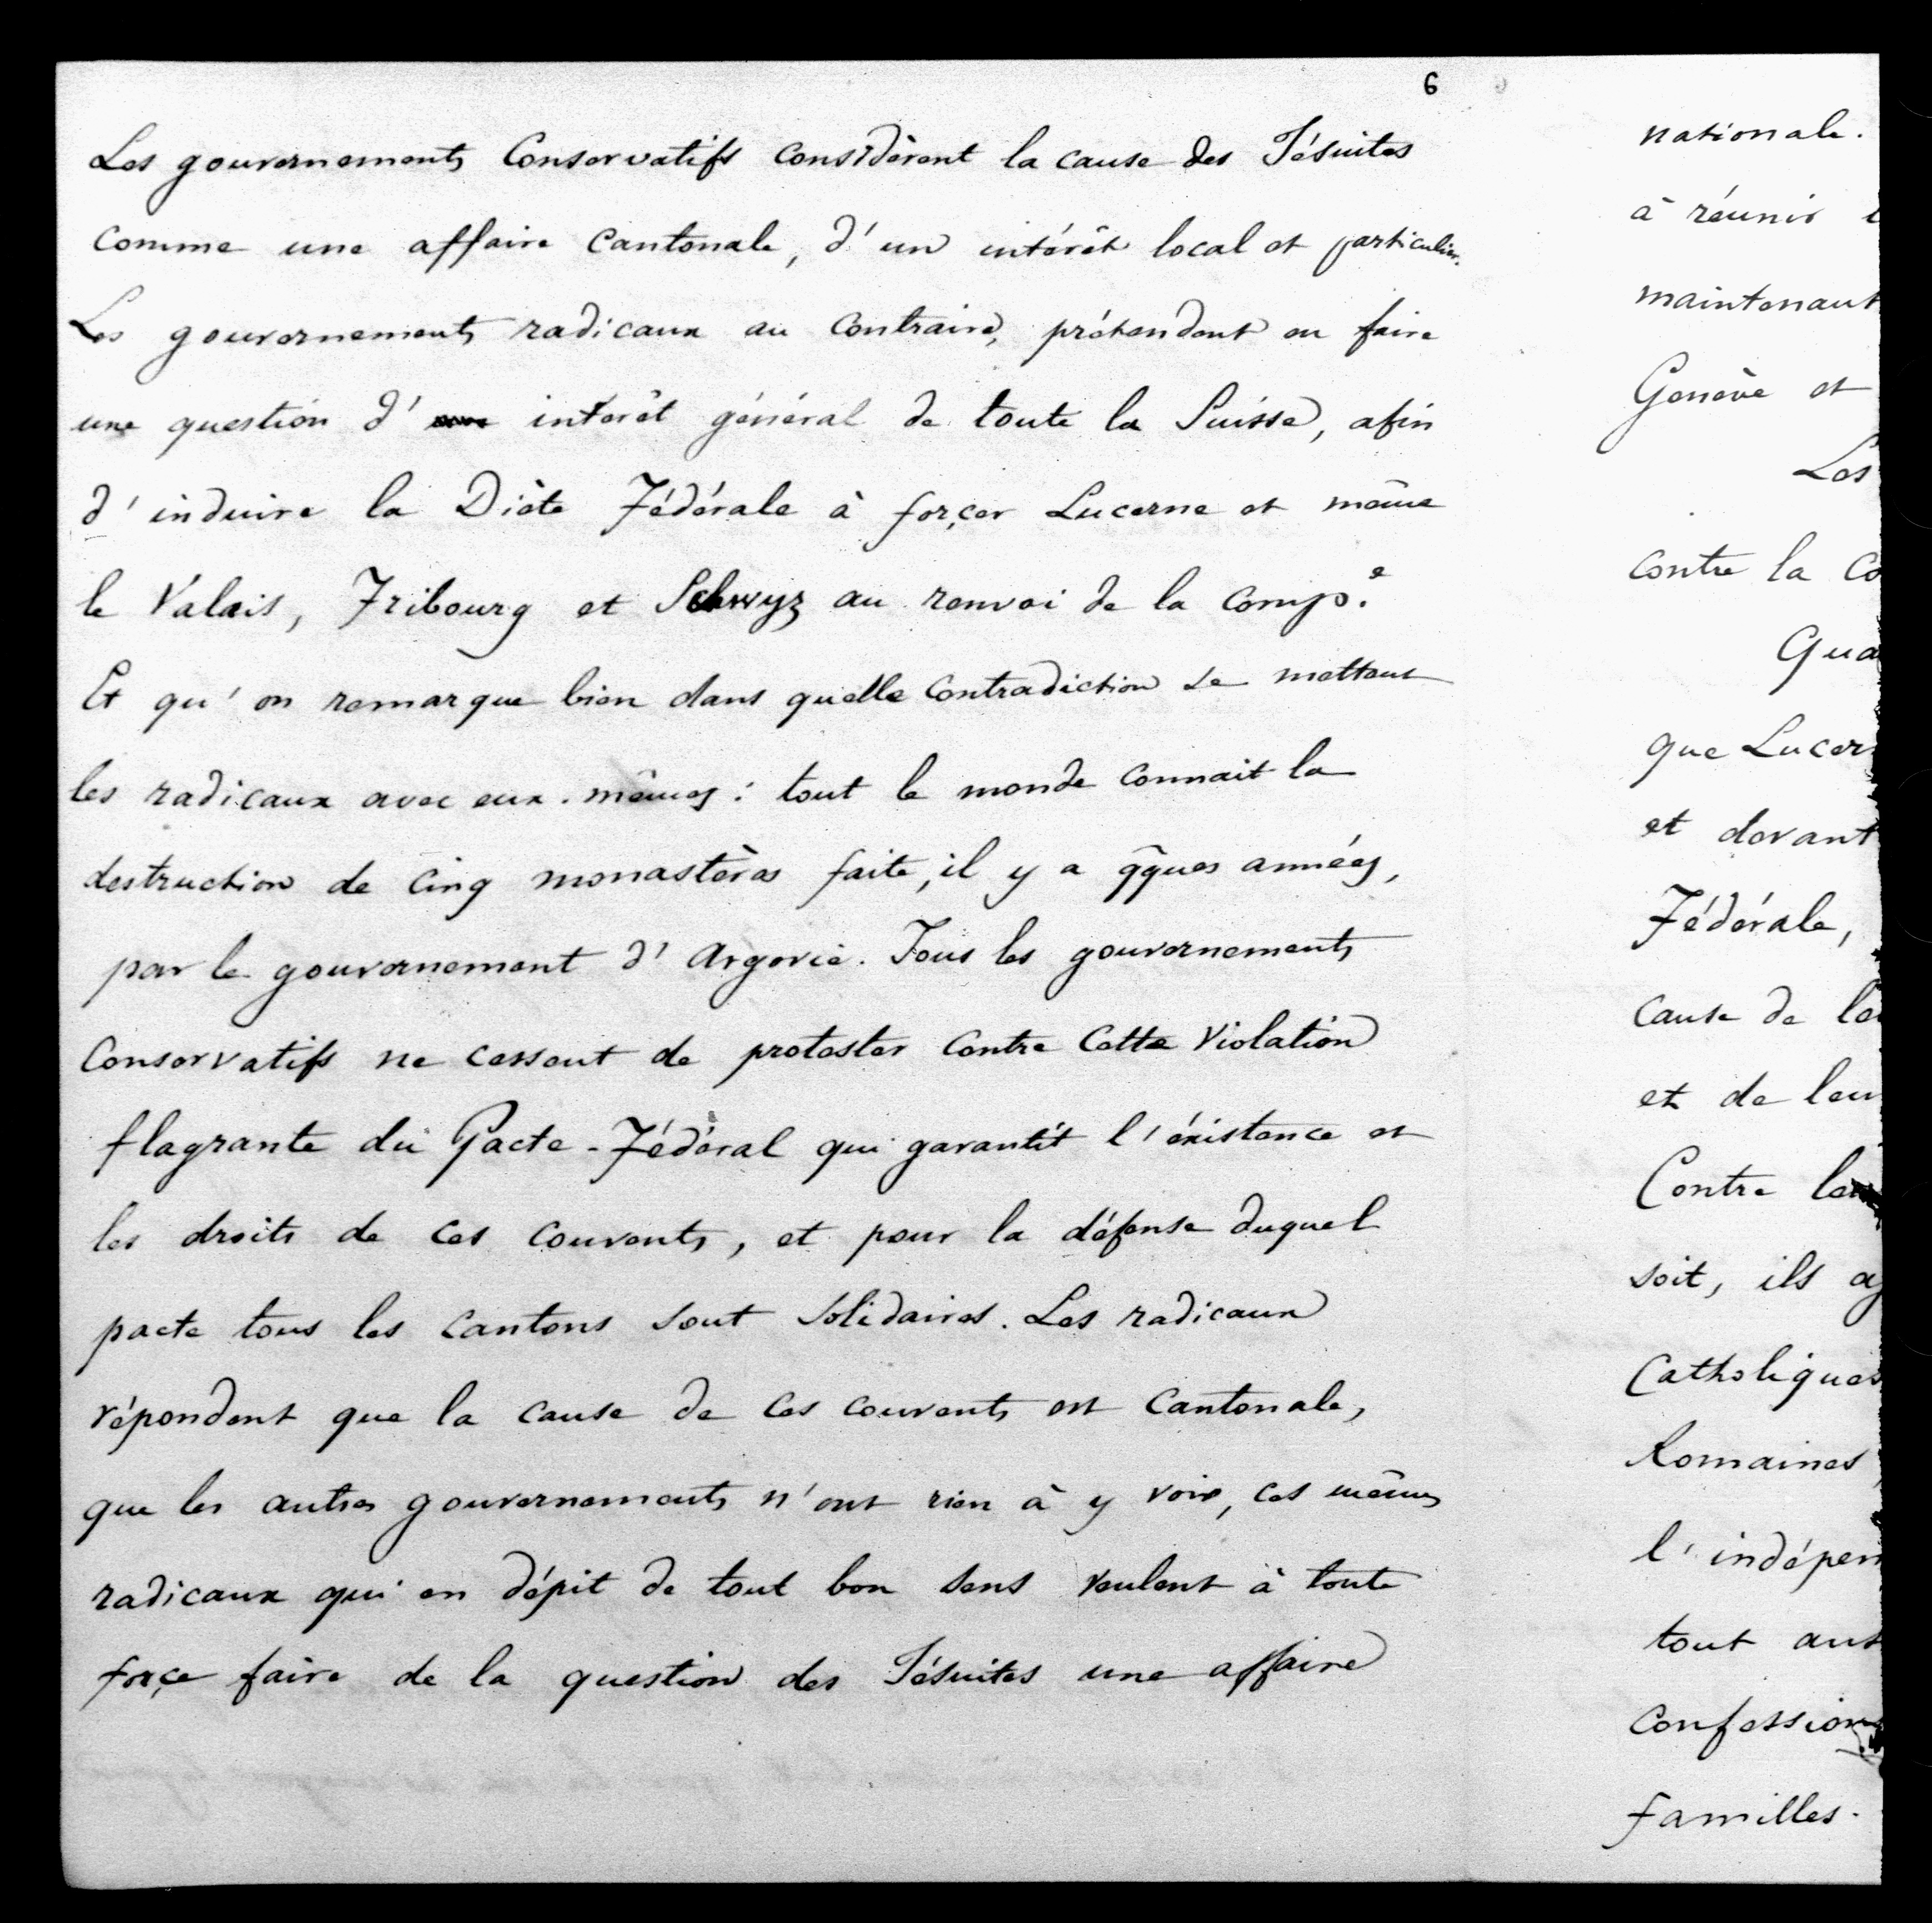 6
Les gouvernements Conservatifs considèrent la cause des Jésuites
comme une affaire Cantonale, d'un intérêt local et particulier.
Les gouvernements radicaux au Contraire, prétendent en faire
une question d' intérêt général de toute la Suisse, afin
d'induire la Diète Fédérale à forçer Lucerne et même
le Valais, Fribourg et Schwyz au renvoi de la Comp.e
Et qu'on remarque bien dans quelle Contradiction se mettent
les radicaux avec eux-mêmes : tout le monde connait la
destruction de Cinq monastères faite, il y a qques années,
par le gouvernement d'Argovie. Tous les gouvernements
Conservatifs ne cessent de protester Contre Cette Violation
flagrante du Pacte-Fédéral qui garantit l'éxistence et
les droits de Ces Couvents, et pour la défense duquel
pacte tous les Cantons sont solidaires. Les radicaux
répondent que la Cause de Ces Couvents est Cantonale,
que les autres gouvernements n'ont rien à y voir, ces mêmes
radicaux qui en dépit de tout bon sens veulent à toute
forçe faire de la question des Jésuites une affaire
nationale.
à réunir
maintenant
Genève et
Les
contre la Co
Qua
que Lucer
et devant
Fédérale,
cause de la
et de leu
Contre les
soit, ils a
Catholiques
Romaines
l'indépen
tout aut
Confession
familles.